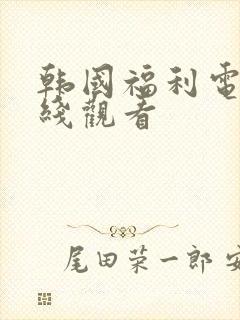 韩國福利電
綫觀看
尾田荣一郎 安